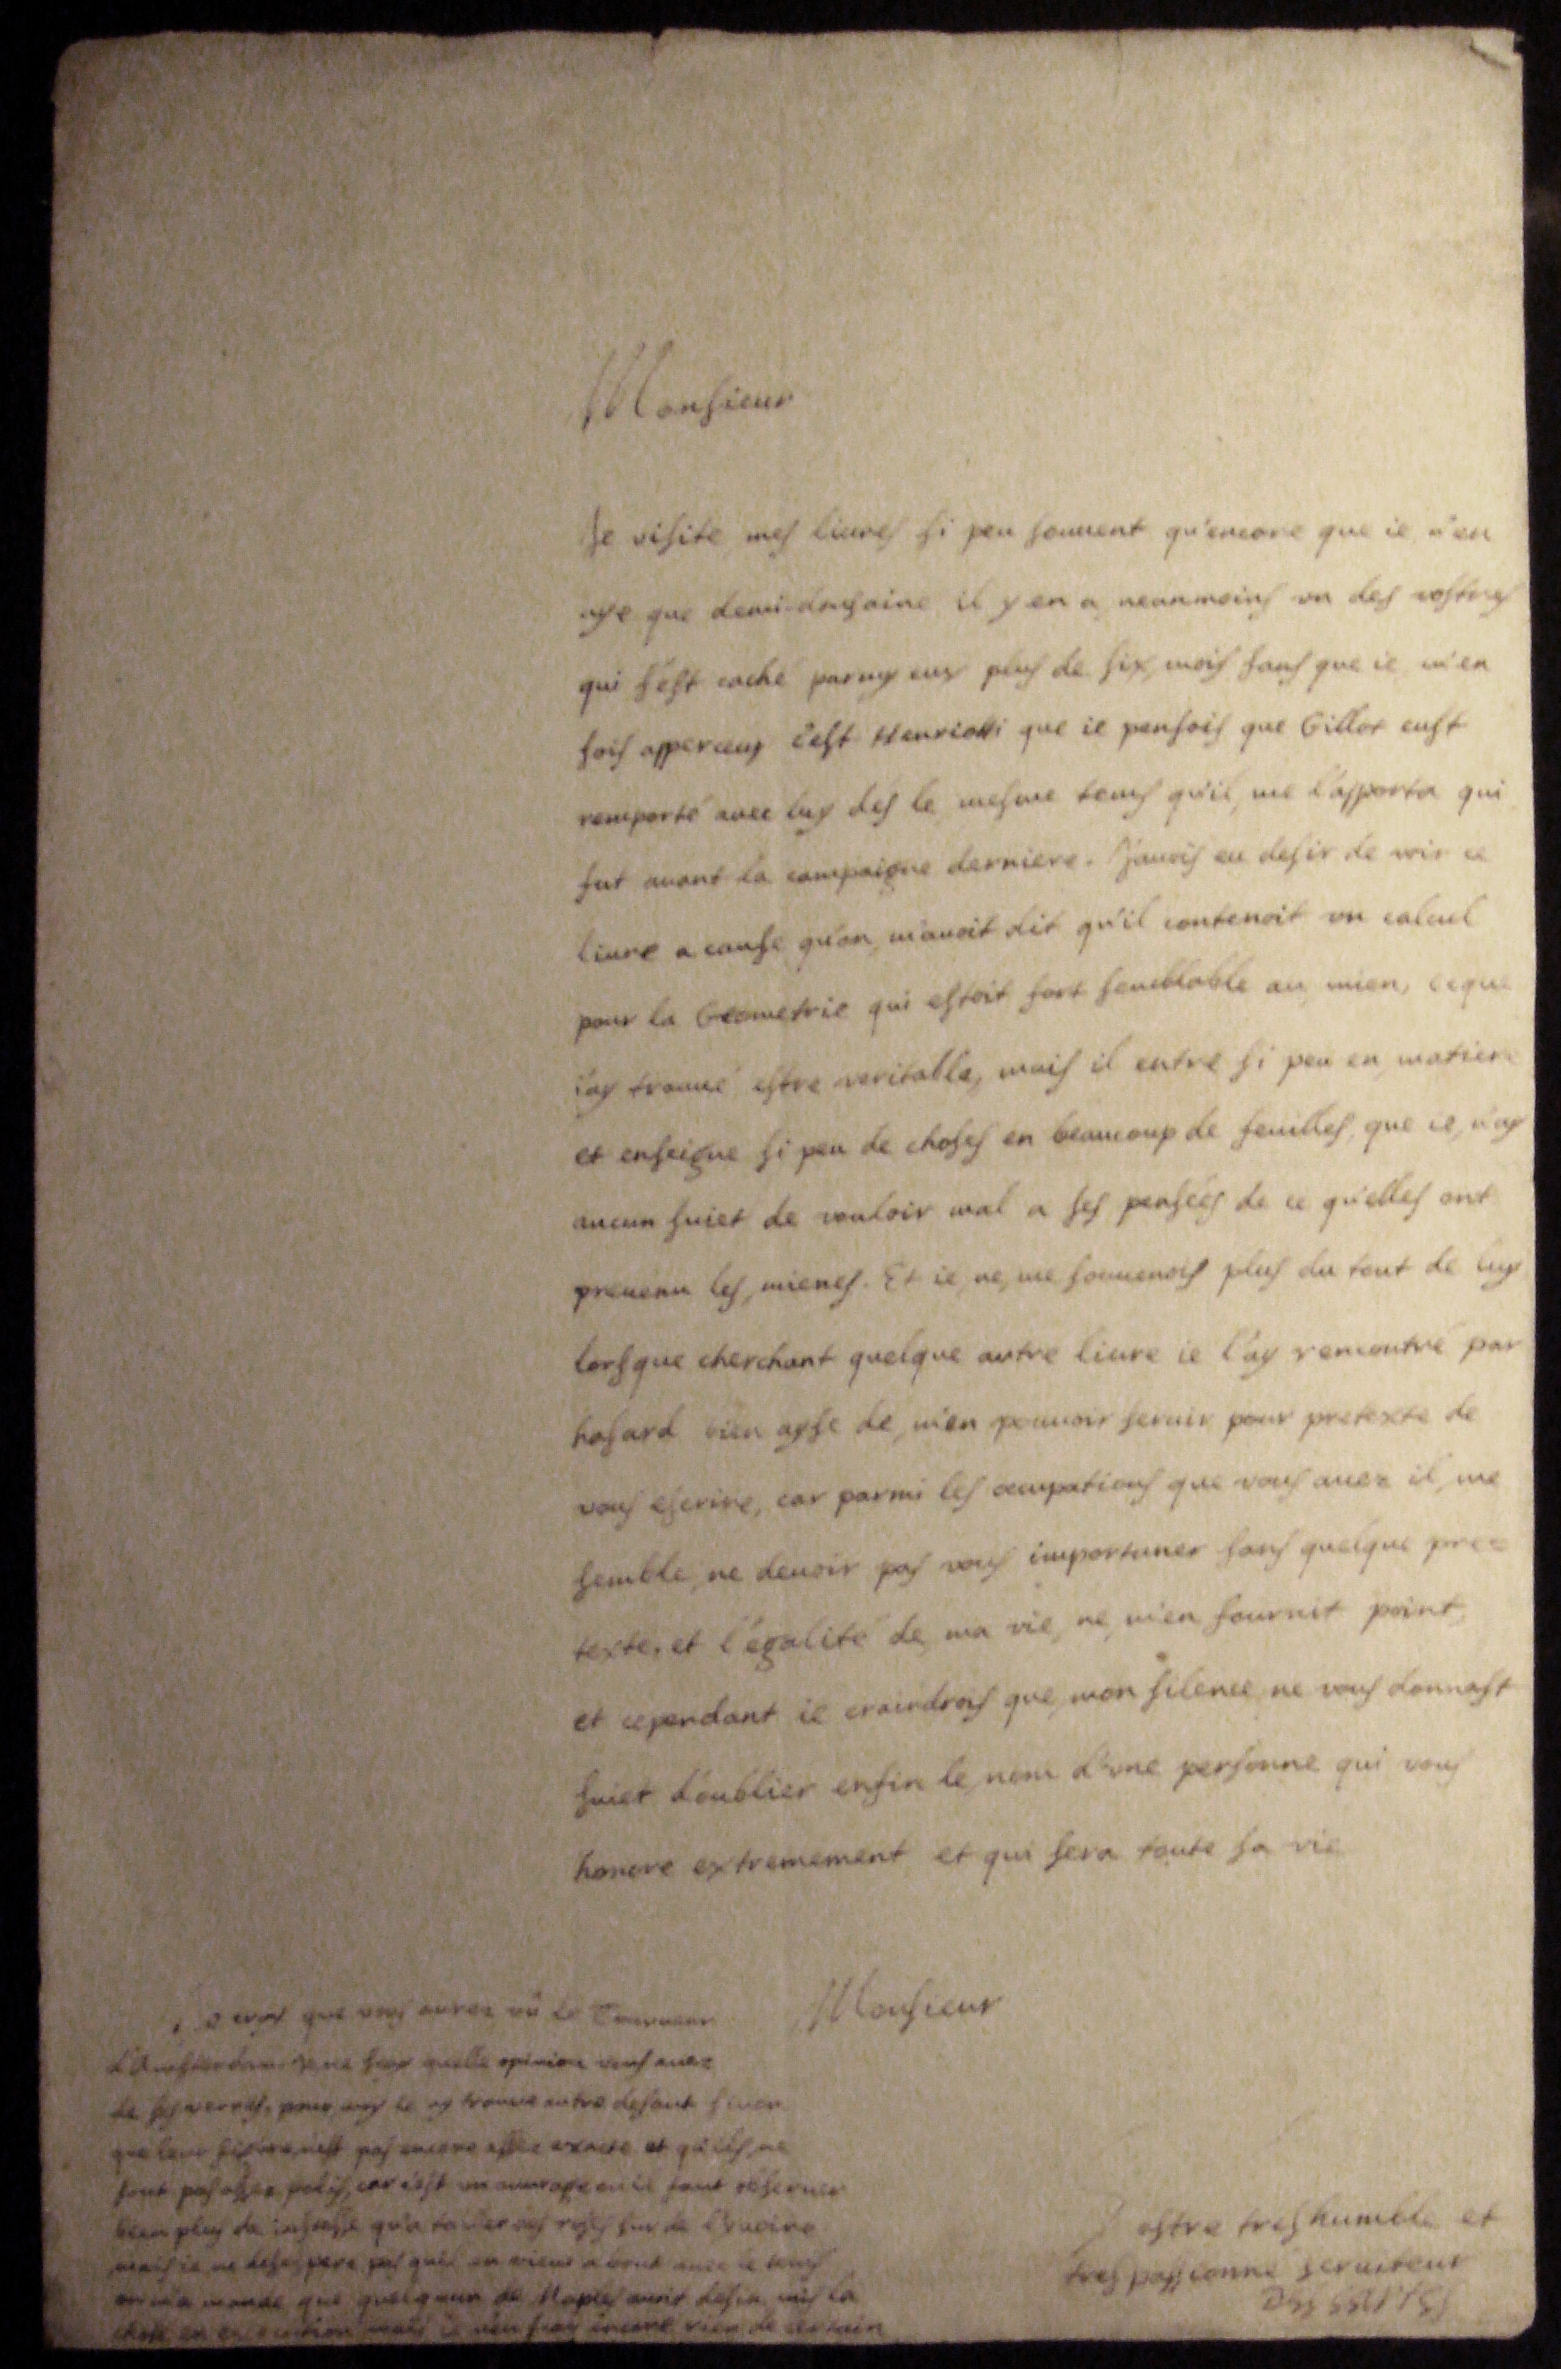 Monsieur
Je visite mes liures si peu souuent qu'encore que ie n'en
aye que demi-douzaine il y en a neanmoins vn des vostres
qui s'est caché parmy eux plus de six mois sans que ie m'en
sois apperceu c'est que ie pensois que Gillot eust
remporté auec luy des le mesme tems qu'il me l'apporta qui
fut auant la campaigne derniere. J'auois eu desir de voir ce
liure a cause qu'on m'auoit dit qu'il contenoit vn calcul
pour la Geometrie qui estoit fort semblable au mien, ceque
i'ay trouué estre veritable, mais il entre si peu en matiere
et enseigne si peu de choses en beaucoup de feuilles, que ie n'ay
aucun suiet de vouloir mal a ses pensées de ce qu'elles ont
preuenu les mienes. Et ie ne me souuenois plus du tout de luy
lorsque cherchant quelque autre liure ie l'ay rencontré par
hasard bien ayse de m'en pouuoir seruir pour pretexte de
vous escrire, car parmi les occupations que vous auez il me
semble ne deuoir pas vous importuner sans quelque pre=
texte, et l'égalité de ma vie ne m'en fournit point
et cependant ie craindrois que mon silence ne vous donnast
suiet d'oublier enfin le nom d'vne personne qui vous
honore extremement et qui sera toute sa vie
Monsieur
Je croy que vous aurez vû le Tourneur
d'Amsterdam Je ne sçay quelle opinion vous auez
de ses verres, pour moy ie ny trouue autre defaut sinon
que leur figure n'est pas encore assez exacte et qu'ils ne
sont pas assez polis, car c'est vn ouurage ou il faut obseruer
bien plus de iustesse qu'a tourner des roses sur de l'yuoire
mais ie ne desespere pas qu'il en viene a bout auec le tems
on m'a mandé que quelqu'un de Naples auoit desia mis la
chose en execution mais ie n'en sçay encore rien de certain
Vostre tres humble et
tres passionné seruiteur